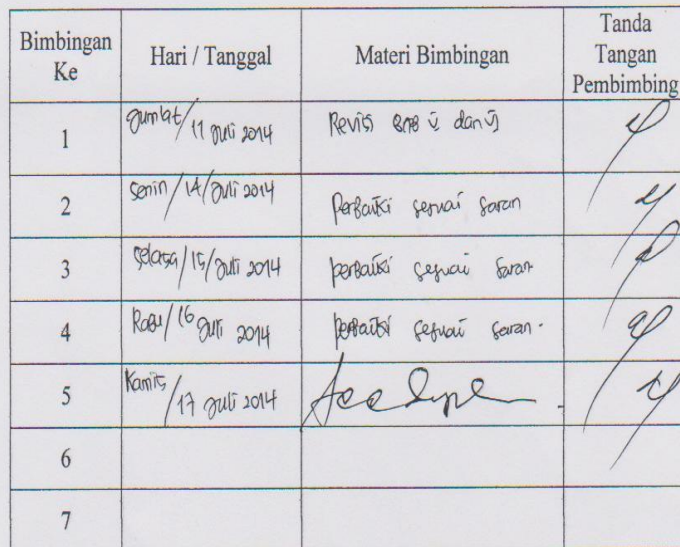 Bimbingan Ke
Hari / Tanggal
Materi Bimbingan
Tanda Tangan Pembimbing
1
Jumat / 11 Juli 2014
Revisi BAB V dan VI
2
Senin / 14 / Juli 2014
Perbaiki sesuai saran
3
Selasa / 15 / Juli 2014
perbaiki sesuai saran
4
Rabu / 16 Juli 2014
perbaiki sesuai saran.
5
Kamis / 17 Juli 2014
6
7